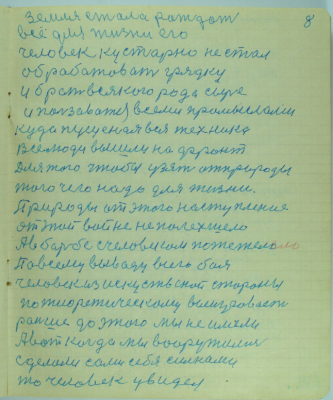 8
земля стала рождат
всё для жизни его
человек кустарно не стал
обработоват грядку
и брат всякого рода сыре
и ползоватся всеми промыслами
куда пущеная вся техника
Все люди вышли на фронт
Для того чтобы узят от природы
того чего надо для жизни.
Природы от этого наступление
от этой войне не полехшело
А в барбе с человиком потежелело
По всему выводу всего боя
человек из искуственой стороны
по тиоретическому выигровает
ранше до этого мы не имели
А вот когда мы вооружилис
сделали сами себя силнами
то человек увидел